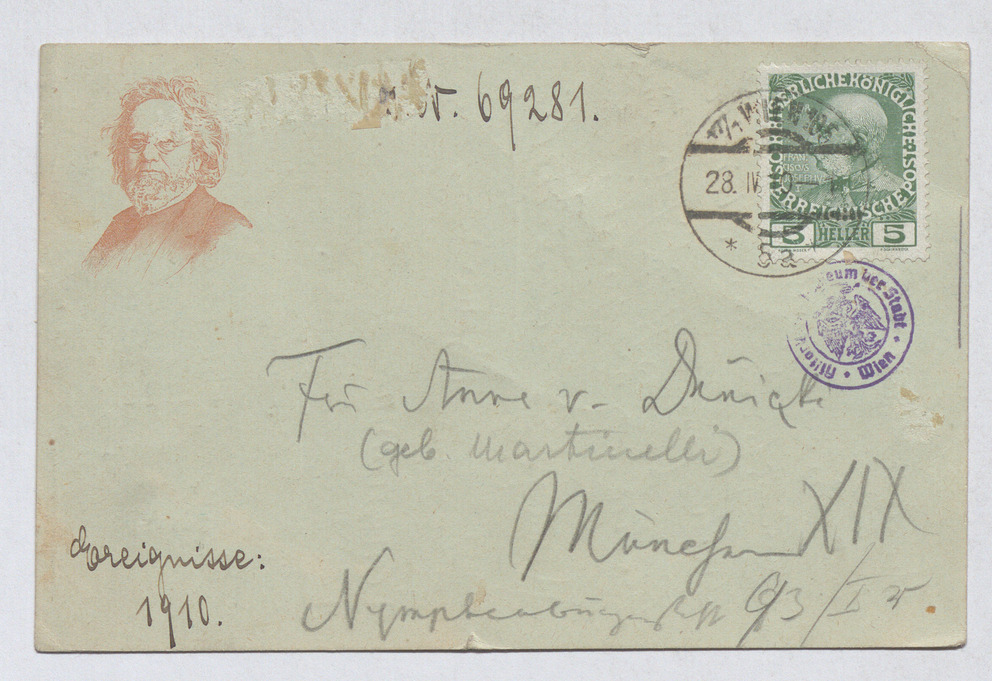 I. N. 69281.
KAISERLICHE KÖNIGLICHE ÖSTERREICHISCHE POST
FRAN
CISCVS
IOSEPHV
5 HELLER 5
WIEN
28. IV
Museum der Stadt Wien
Anna v.
(geb. Martinelli)
München XIX
Nymphenburgerstr 93/I r.
Ereignisse:
1910.